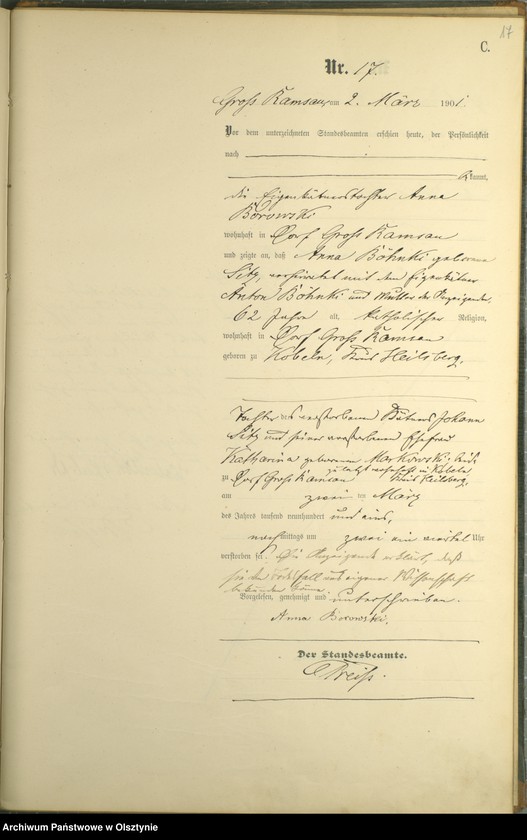 17
C.
Nr. 17.
Gross Ramsau, am 2. März 1901.
Vor dem unterzeichneten Standesbeamten erschien heute, der Persönlichkeit
nach
kannt,
die Eigenkäthnertochter Anna
Borowski
wohnhaft in Dorf Gross Ramsau
und zeigte an, daß Anna Böhnki geborene
Sitz, verheiratet mit dem Eigenkäthner
Anton Böhnki und Mutter der Anzeigenden,
62 Jahre alt, katholischer Religion,
wohnhaft in Dorf Gross Ramsau
geboren zu Kobeln, Kreis Heilsberg,
Tochter des verstorbenen Käthners Johann
Sitz und seiner verstorbenen Ehefrau
Katharina geborenen Markowski, beide
zuletzt wohnhaft in Kobeln
Kreis Heilsberg,
zu Dorf Gross Ramsau
am zwei ten März
des Jahres tausend neunhundert und eins,
nachmittags um zwei ein viertel Uhr
verstorben sei. Die Anzeigende erklärt, daß
sie den Todesfall aus eigener Wissenschaft
bekunden könne.
Vorgelesen, genehmigt und unterschrieben.
Anna Borowski.
Der Standesbeamte.
Preiß.
Archiwum Państwowe w Olsztynie